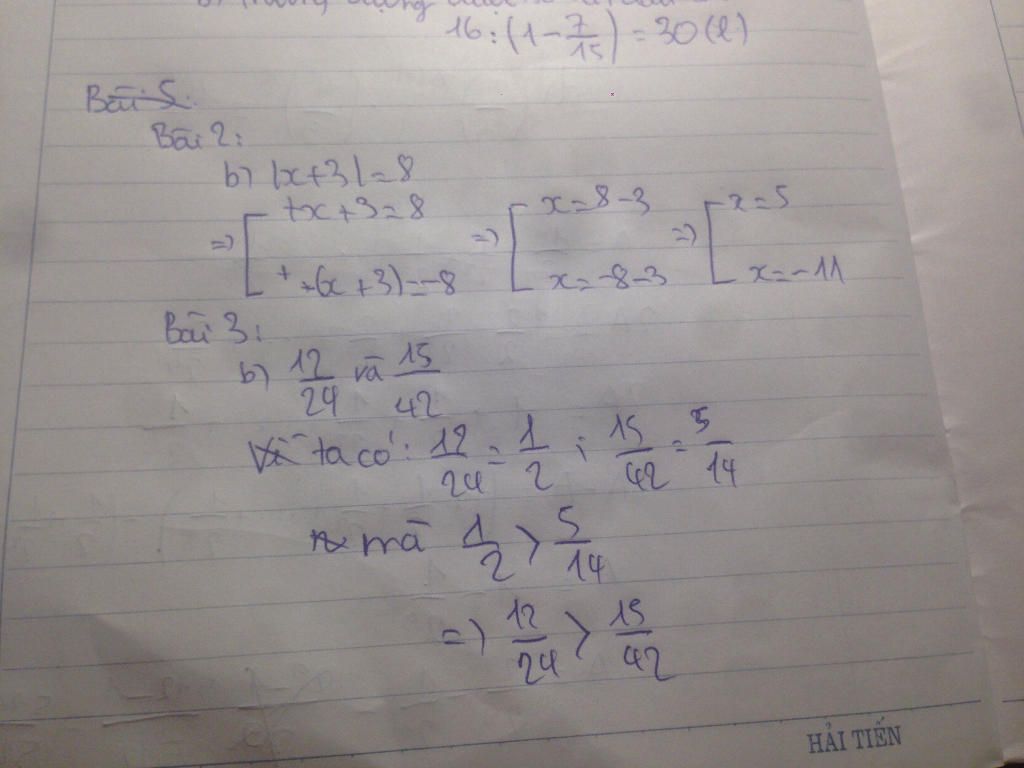 16:(1-7/15)=30(l)
Bài 5:
Bài 2:
b) |x+3|=8
=> [ +x+3=8 => [ x=8-3 => [ x=5
+ +(x+3)=-8 x=-8-3 x=-11
Bài 3:
b) 12/24 và 15/42
Vì ta có: 12/24=1/2; 15/42=5/14
mà 1/2>5/14
=> 12/24>15/42
HẢI TIẾN